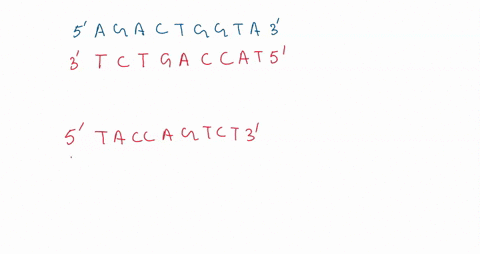 5' A G A C T G G T A 3'
3' T C T G A C C A T 5'
5' T A C C A G T C T 3'